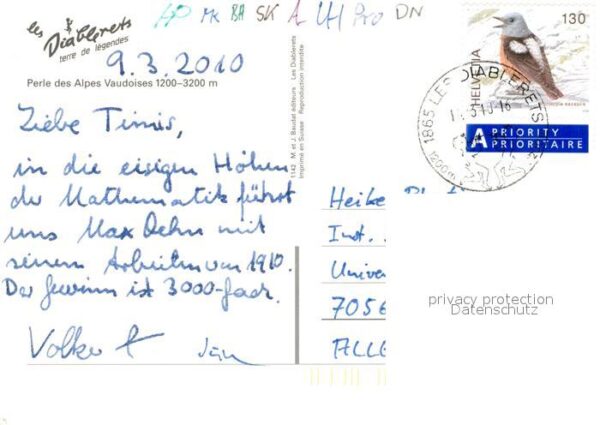 AP MK BA SK A VH Pro DN
les Diablerets
terre de légendes
9.3.2010
Perle des Alpes Vaudoises 1200–3200 m
Liebe Timis,
in die eisigen Höhen
der Mathematik führt
uns Max Dehn mit
seinen Arbeiten von 1910.
Der Gewinn ist 3000-fach.
Volker
Jan
1142 M. et J. Baudat éditeurs Les Diablerets
Imprimé en Suisse Reproduction interdite
130
HELVETIA
1865 LES DIABLERETS
1200m
A PRIORITY
PRIORITAIRE
Heike
Inst.
Univer
7056
ALLE
privacy protection
Datenschutz